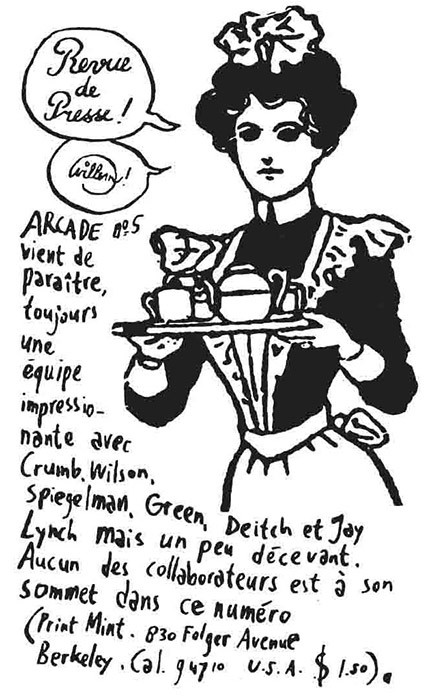 Revue
de
Presse !
Willem !
ARCADE nº5
vient de
paraître,
toujours
une
équipe
impressio-
nante avec
Crumb, Wilson,
Spiegelman, Green,
Deitch et Jay
Lynch mais un peu décevant.
Aucun des collaborateurs est à son
sommet dans ce numéro
(Print Mint. 830 Folger Avenue
Berkeley. Cal. 94710 U.S.A. $ 1.50).